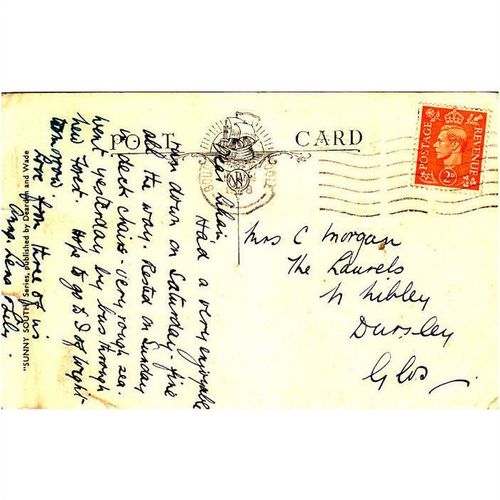 POST CARD
POSTAGE REVENUE
2D
Had a very enjoyable
run down on Saturday - fine
all the way. Rested on Sunday
in deck chairs - very rough sea.
Went yesterday by bus through
New Forest. Hope to go to I of Wight -
tomorrow.
Love from three of us
Mrs C Morgan
The Laurels
N Nibley
Dursley
Glos.
"SUNNY SOUTH" Series, published by Dearden and Wade